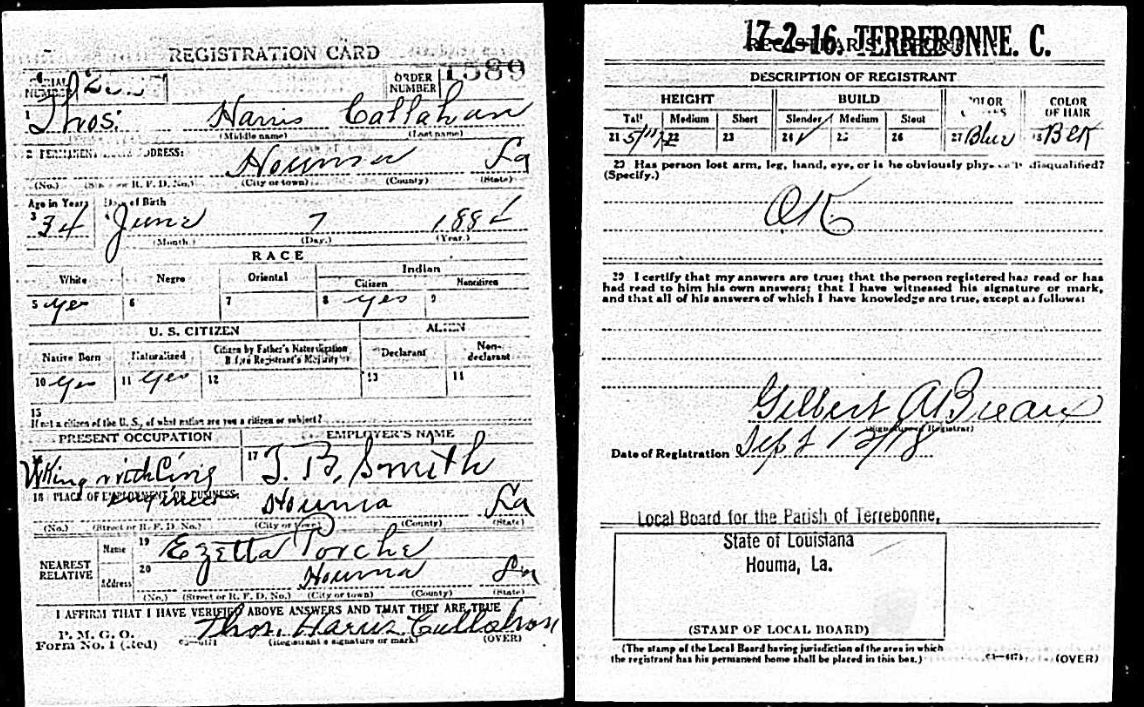 REGISTRATION CARD
ORDER NUMBER 1589
1 Thos. Harris Callahan
(Middle name) (Last name)
2 PERMANENT ADDRESS:
Houma La
(No.) (City or town) (County) (State)
Age in Years Date of Birth
3 34 June 7 1884
(Month.) (Day.) (Year.)
RACE
White Negro Oriental Indian
Citizen Noncitizen
5 yes 6 7 8 yes 9
U. S. CITIZEN ALIEN
Native Born Naturalized Citizen by Father's Naturalization Before Registrant's Majority Declarant Non-declarant
10 yes 11 yes 12 13 14
15
If not a citizen of the U. S., of what nation are you a citizen or subject?
PRESENT OCCUPATION EMPLOYER'S NAME
17 T. B. Smith
18 PLACE OF EMPLOYMENT OR BUSINESS:
Houma La
(No.) (Street or R. F. D. No.) (City or town) (County) (State)
NEAREST RELATIVE
Name 19 Ezetta Porche
Address 20 Houma La
(No.) (Street or R. F. D. No.) (City or town) (County) (State)
I AFFIRM THAT I HAVE VERIFIED ABOVE ANSWERS AND THAT THEY ARE TRUE
P. M. G. O.
Form No. 1 (Red) Thos. Harris Callahan
(Registrant's signature or mark) (OVER)
17-2-16. TERREBONNE. C.
DESCRIPTION OF REGISTRANT
HEIGHT BUILD COLOR OF EYES COLOR OF HAIR
Tall Medium Short Slender Medium Stout
21 5'11 1/2 22 23 24 ✓ 25 26 27 Blue 28 Blk
29 Has person lost arm, leg, hand, eye, or is he obviously physically disqualified?
(Specify.)
OK
30 I certify that my answers are true; that the person registered has read or has
had read to him his own answers; that I have witnessed his signature or mark,
and that all of his answers of which I have knowledge are true, except as follows:
Gilbert A Breaux
(Signature of Registrar)
Date of Registration Sept 12/18
Local Board for the Parish of Terrebonne,
State of Louisiana
Houma, La.
(STAMP OF LOCAL BOARD)
(The stamp of the Local Board having jurisdiction of the area in which
the registrant has his permanent home shall be placed in this box.)
(OVER)